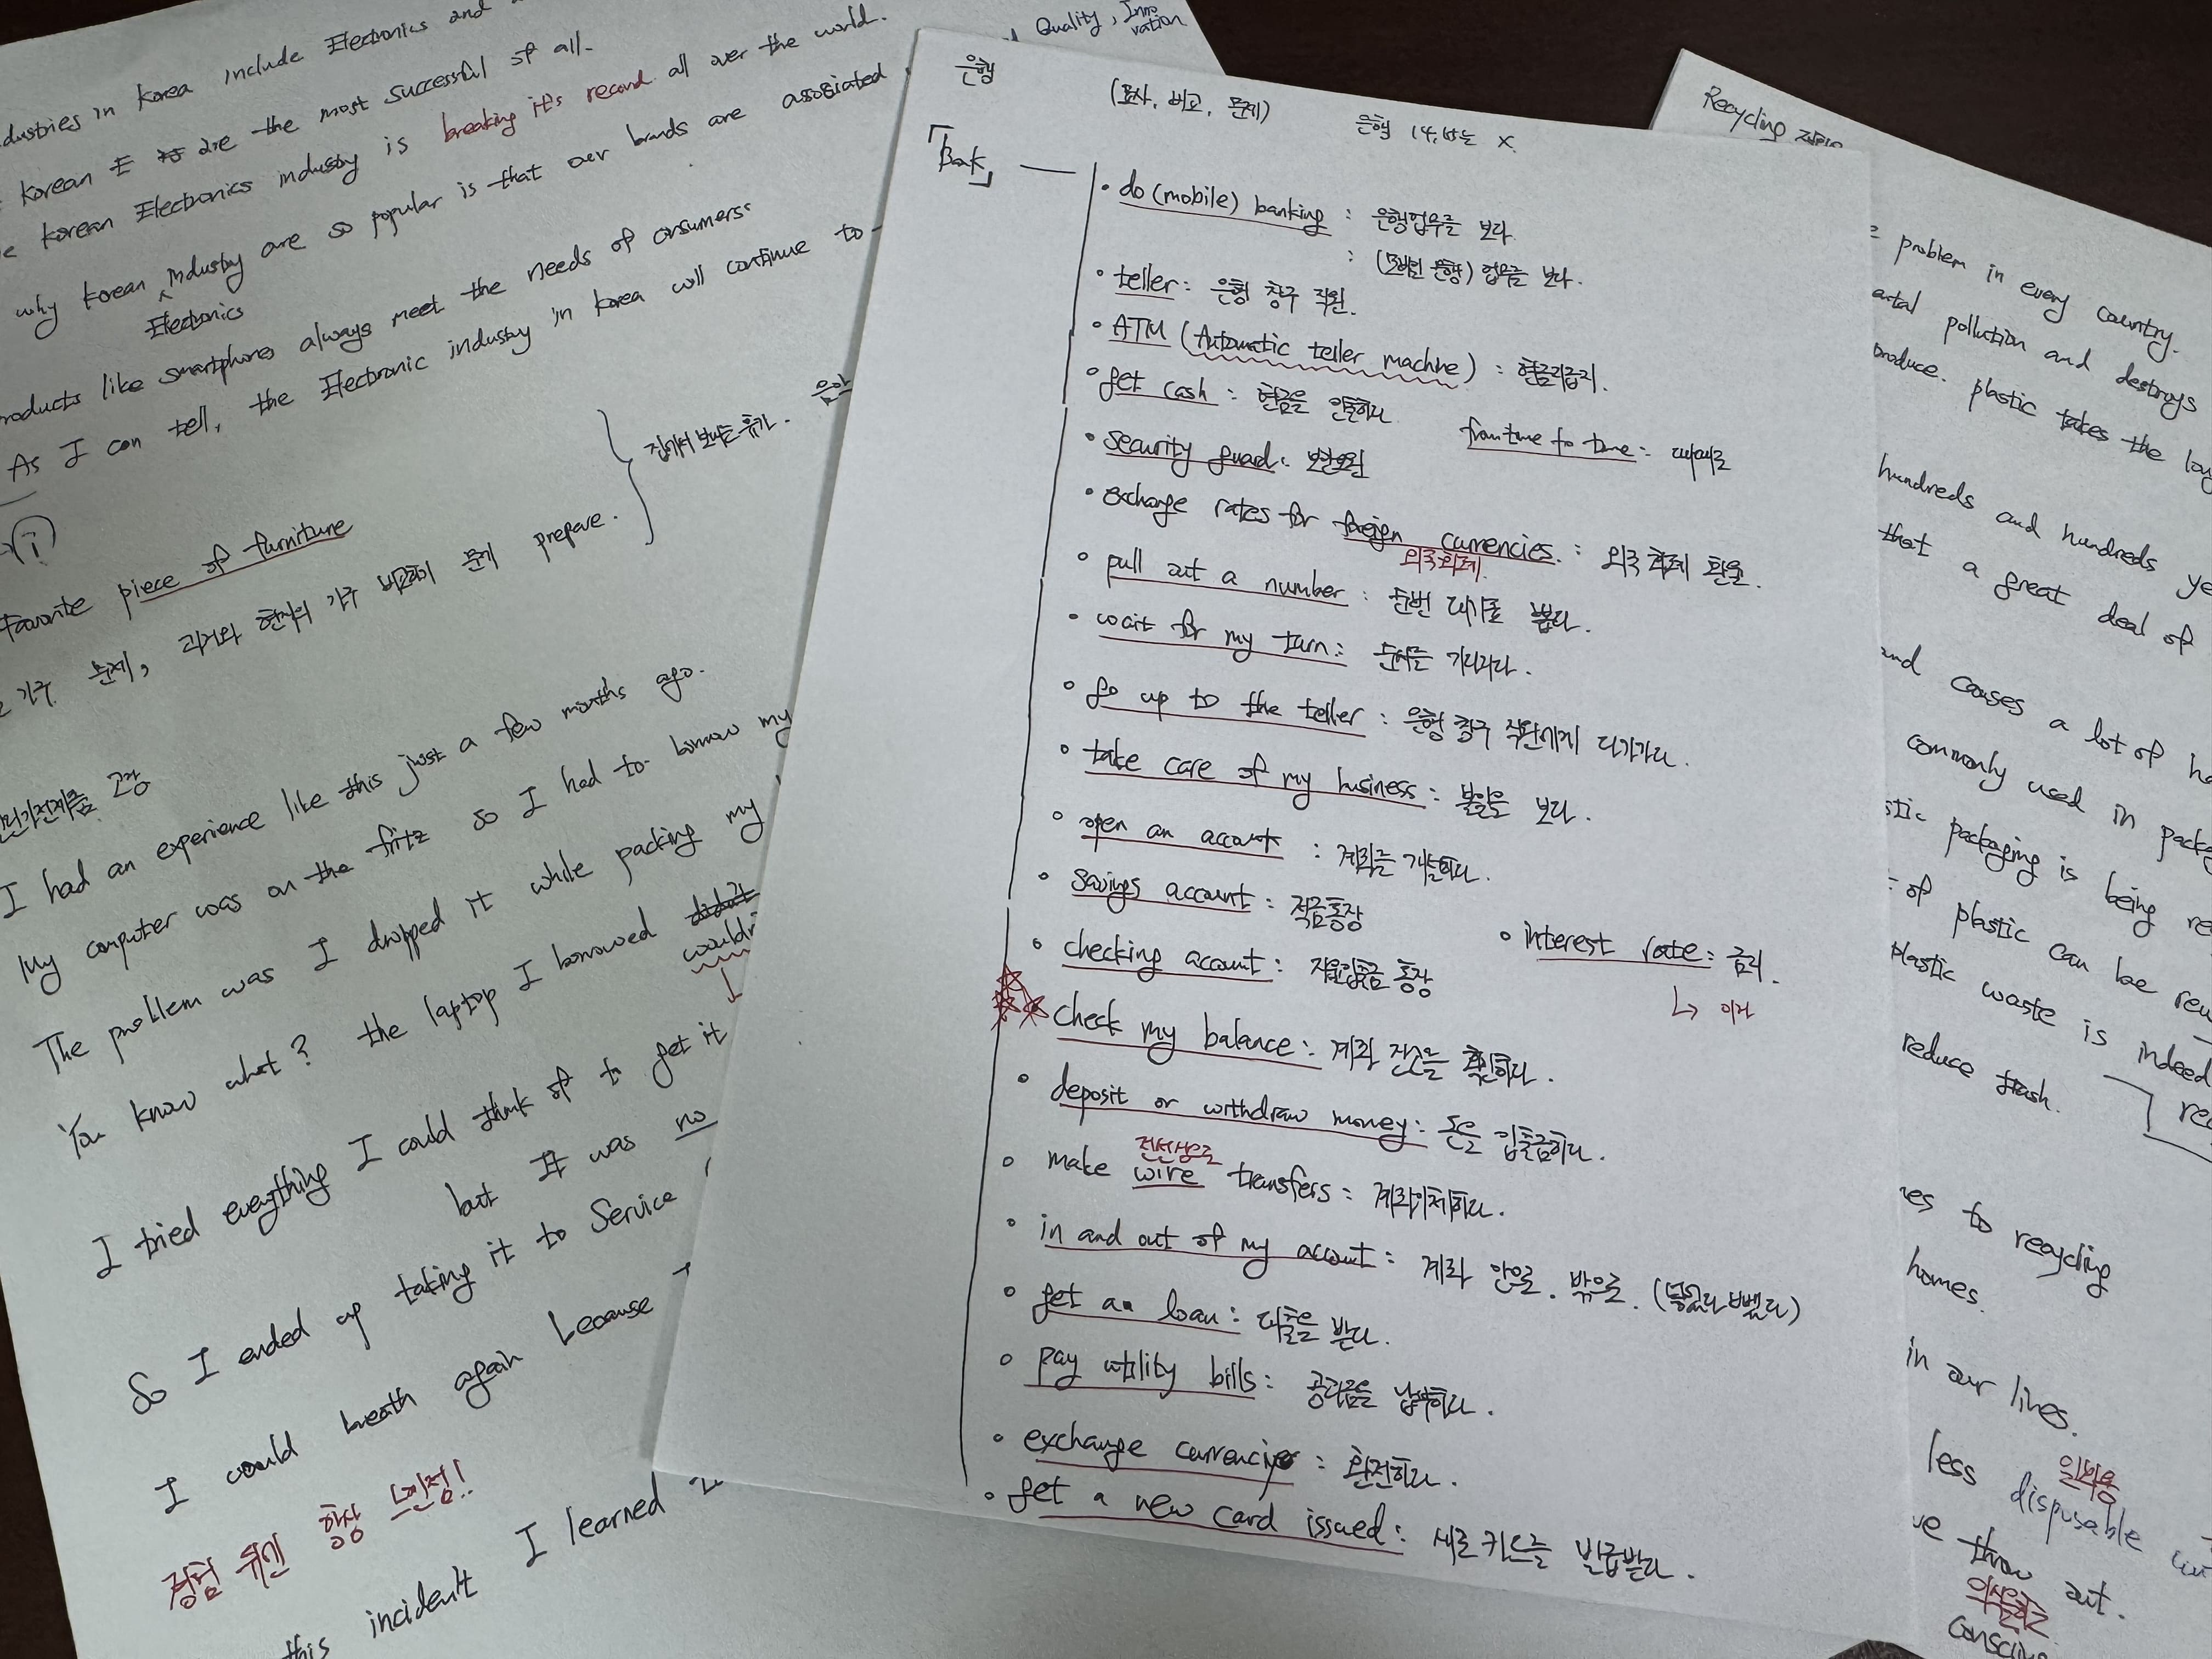 industries in Korea include Electronics and
Korean E are the most successful of all.
Korean Electronics industry is breaking it's record all over the world.
why Korean industry are so popular is that our brands are associated
Electronics
Quality, Inno
vation
products like smartphones always meet the needs of consumers.
As I can tell, the Electronic industry in Korea will continue to
집에서 보내는 휴가.
i
favorite piece of furniture
가구 문제, 과거와 현재의 가구 비교하기 문제 prepare.
고장
I had an experience like this just a few months ago.
My computer was on the fritz so I had to borrow my
The problem was I dropped it while packing my
You know what? the laptop I borrowed didn't
wouldn
I tried everything I could think of to get it
but It was no
So I ended up taking it to Service
I could breath again because
경험 뒤엔 항상 느낀점!
this incident I learned
은행
(묘사, 비교, 문제)
은행 14, 15는 X.
「Bank」
• do (mobile) banking : 은행업무를 보다.
: (모바일 은행) 업무를 보다.
• teller : 은행 창구 직원.
• ATM (Automatic teller machine) : 현금지급기.
• get cash : 현금을 인출하다.
from time to time : 때때로
• security guard : 보안요원
• exchange rates for foreign currencies : 외국 화폐 환율.
외국화폐.
• pull out a number : 순번 대기표 뽑다.
• wait for my turn : 순서를 기다리다.
• go up to the teller : 은행 창구 직원에게 다가가다.
• take care of my business : 볼일을 보다.
• open an account : 계좌를 개설하다.
• savings account : 적금통장
• checking account : 자율입출금 통장
• interest rate : 금리.
↳ 이자
check my balance : 계좌 잔고를 확인하다.
• deposit or withdraw money : 돈을 입출금하다.
전선상으로
• make wire transfers : 계좌이체하다.
• in and out of my account : 계좌 안으로. 밖으로. (넣었다 뺐다)
• get a loan : 대출을 받다.
• pay utility bills : 공과금을 납부하다.
• exchange currency : 환전하다.
• get a new card issued : 새로 카드를 발급받다.
Recycling
problem in every country.
pollution and destroys
produce. plastic takes the
hundreds and hundreds
that a great deal of
and causes a lot of
commonly used in
packaging is being
of plastic can be
plastic waste is indeed
reduce trash.
to recycling
homes.
in our lives.
일회용
less disposable
throw out.
의식을하고